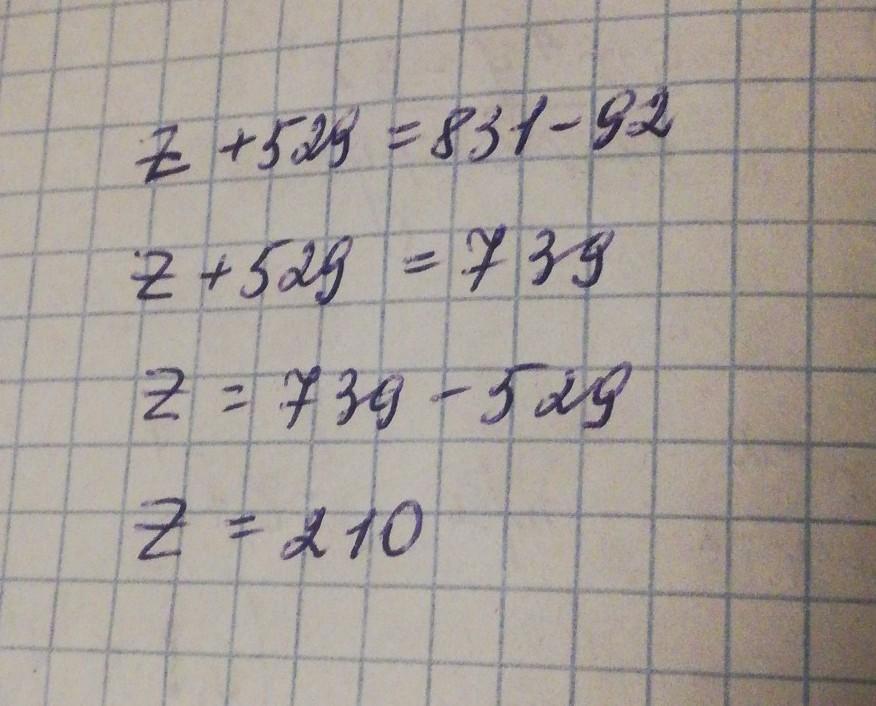 z + 529 = 831 - 92
z + 529 = 739
z = 739 - 529
z = 210